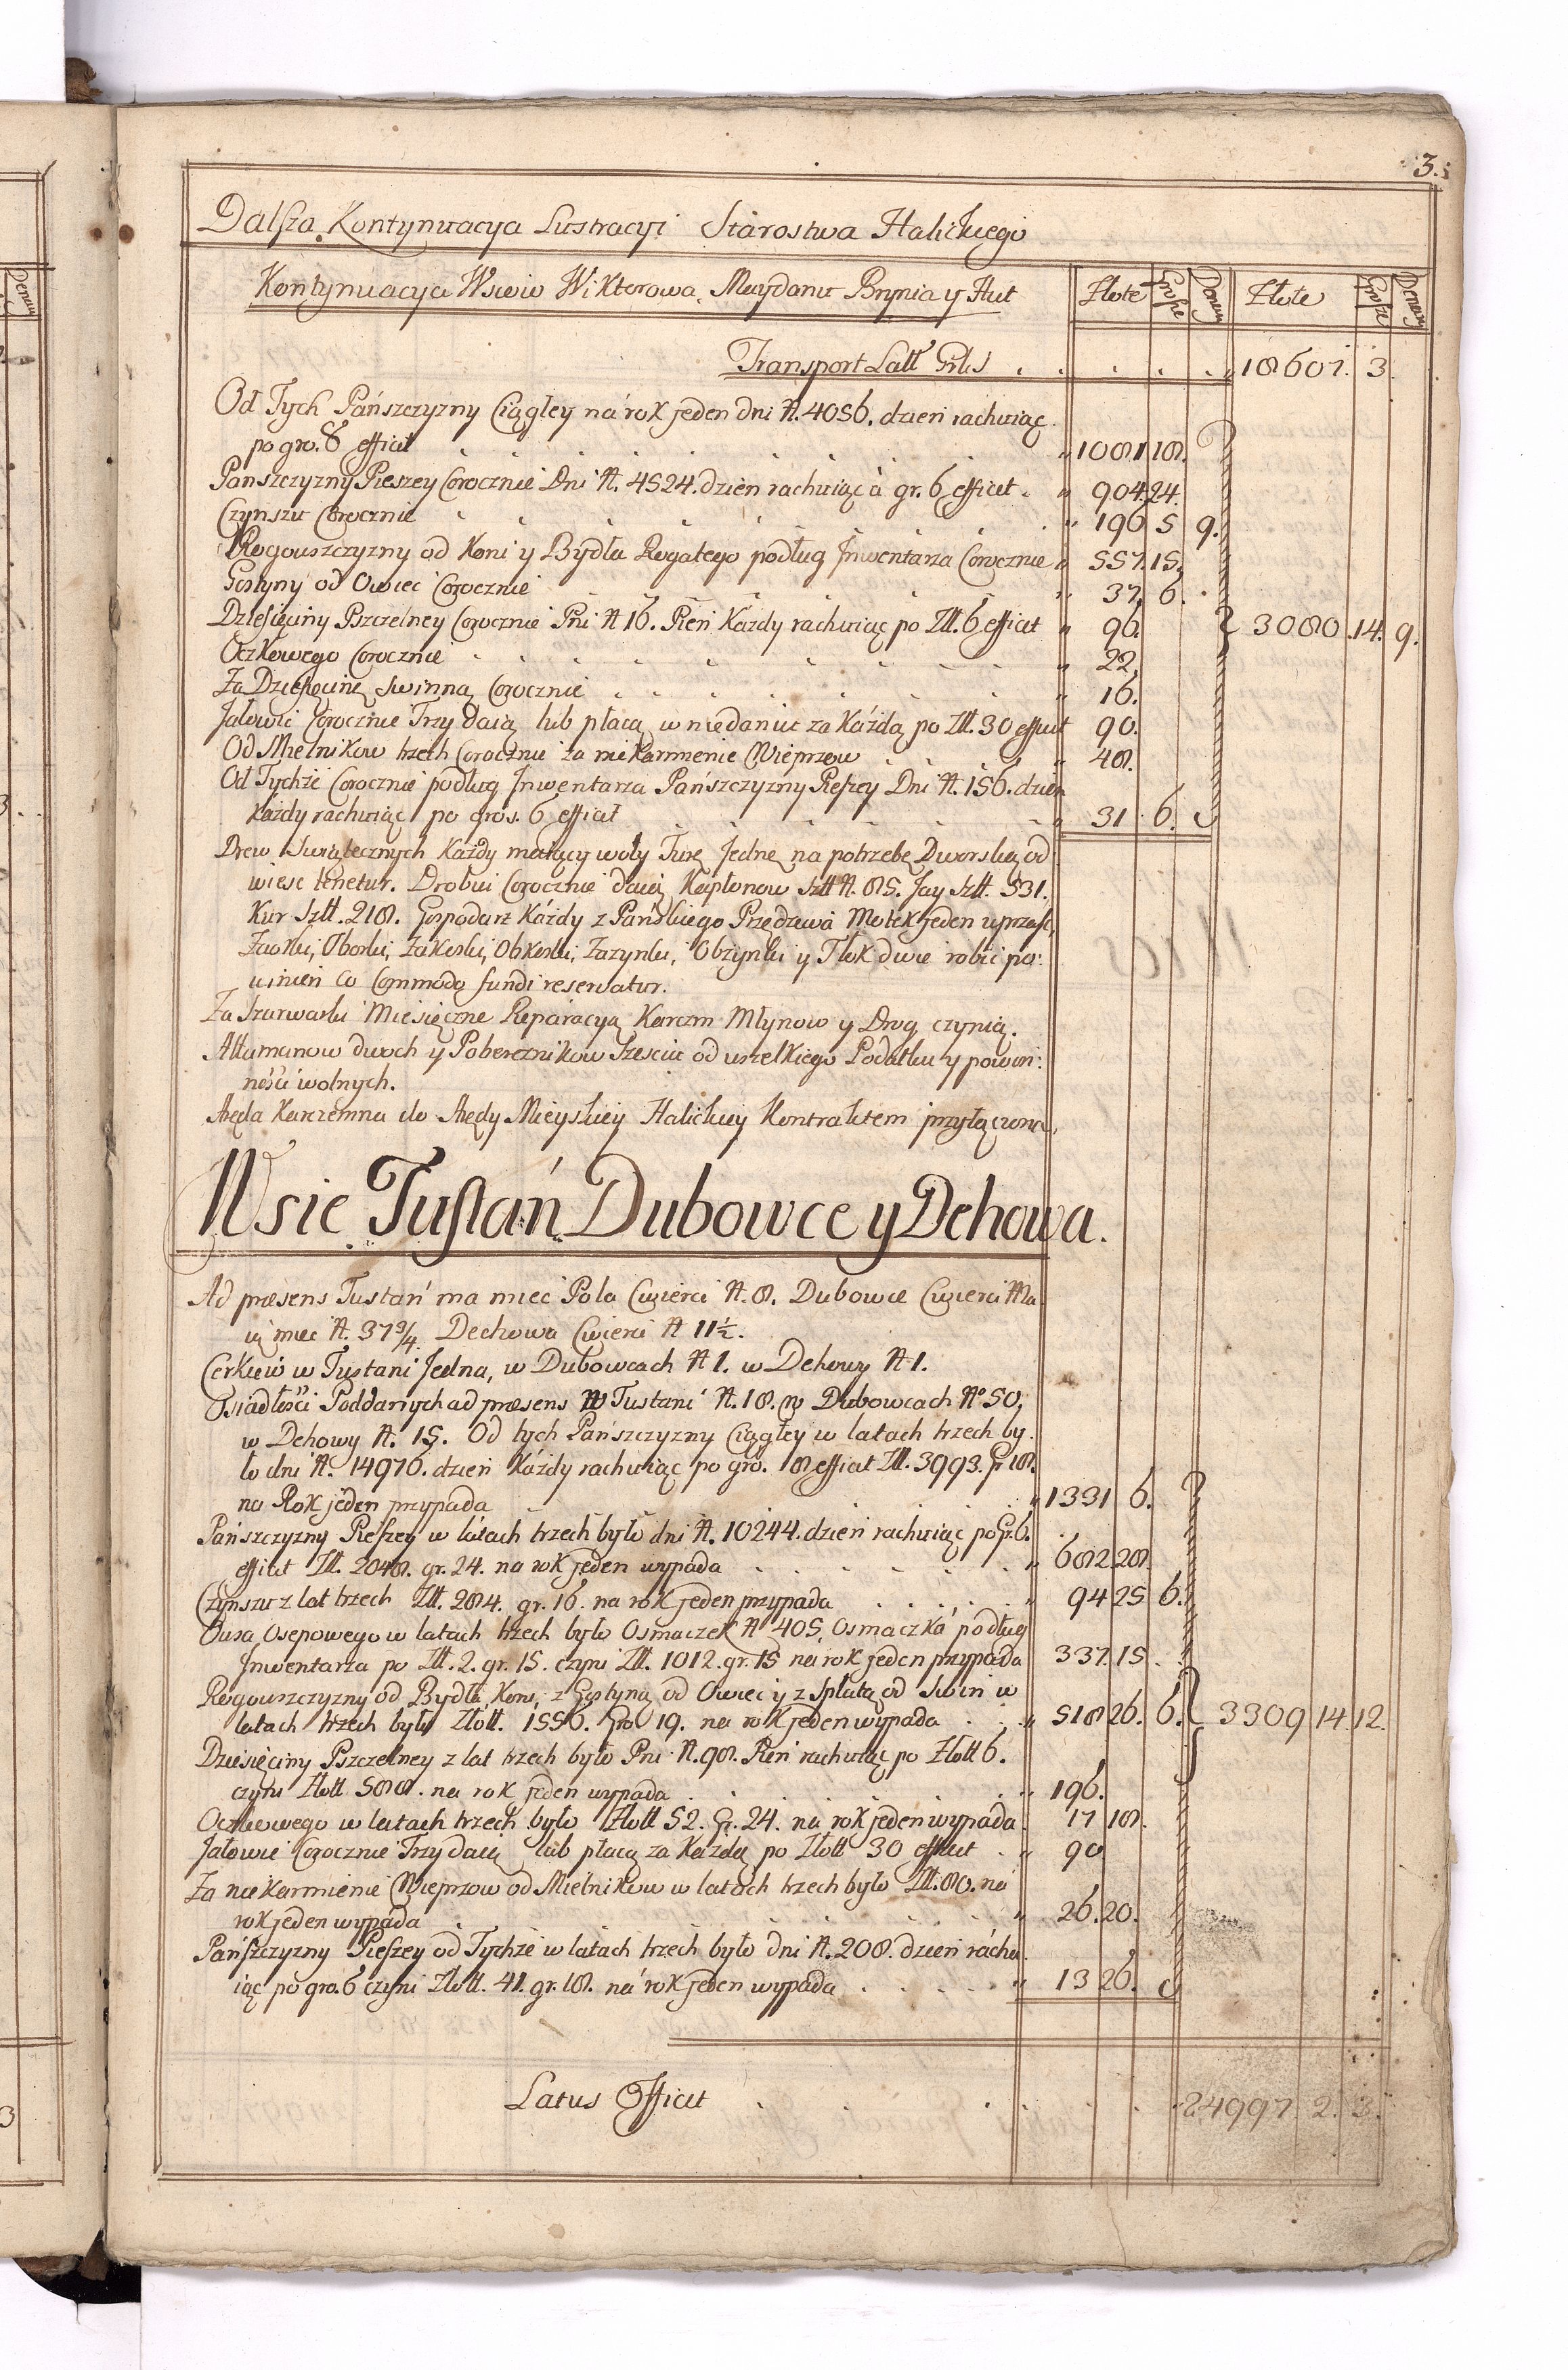 3.
Dalsza Kontynuacya Lustracyi Starostwa Halickiego
Kontynuacya Wsiow Wiktorowa, Maydanu Brynia y Hut Złote Grosze Denary Złote Grosze Denary
Transport Latt Prlis . . . . . " 18607. 3.
Od Tych Pańszczyzny Ciągłey na rok jeden dni N. 4056. dzień rachuiąc
po gro. 8 efficit " 1081 18.
Panszczyzny Pieszey Corocznie Dni N. 4524. dzien rachuiąc a gr. 6 efficit " 904. 24.
Czynszu Corocznie " 196 5 9.
Rogowszczyzny od Koni y Bydła Rogatego podług Inwentarza Corocznie " 557. 15.
Gostyny od Owiec Corocznie " 37. 6.
Dziesięciny Pszczelney Corocznie Pni N 16. Pień Każdy rachuiąc po Złł. 6 efficit " 96. 3080 .14. 9.
Oczkowego Corocznie " 22.
Za Dziesięcinę Swinną Corocznie " 16.
Jałowic Corocznie Trzy daią lub płacą w niedaniu za Każdą po Złł. 30 efficit 90.
Od Mielnikow trzech Corocznie za niekarmienie Wieprzow " 48.
Od Tychże Corocznie podług Inwentarza Pańszczyzny Pieszey Dni N. 156. dzień
Każdy rachuiąc po gros. 6 efficit " 31 . 6.
Drew Swiątecznych Każdy maiący woły Furę Jednę na potrzebę Dworską od
wiesc tenetur. Drobiu Corocznie daią Kapłonow Sztt N. 85. Jay Sztt. 531.
Kur Sztt. 218. Gospodarz Każdy z Pańskiego Przędziwa Motek jeden uprząsć,
Zaorki, Oborki, Zakoski, Obkoski, Zazynki, Obżynki y Tłok dwie robić po:
winien Co Commodo fundi reservatur.
Za Szarwarki Miesięczne Reparacyą Karczm Młynow y Drog czynią.
Attamanow dwoch y Pobereznikow Szesciu od wszelkiego Podatku y powin:
ności wolnych.
Aręda Karczemna do Arędy Mieyskiey Halickiey Kontraktem przyłączona.
Wsie Tustań Dubowce y Dehowa.
Ad præsens Tustań ma miec Pola Cwierci N. 8. Dubowce Cwierci Ma
ią miec N. 37 3/4 Dechowa Cwierci N 11 1/2.
Cerkiew w Tustani Jedna, w Dubowcach N 1. w Dehowy N 1.
Osiadłości Poddanych ad præsens W Tustani N. 18. w Dubowcach No 50,
w Dehowy N. 15. Od tych Pańszczyzny Ciągłey w latach trzech by.
ło dni N. 14976. dzień Każdy rachuiąc po gro. 8 efficit Złł. 3993. gr 18.
na Rok jeden przypada " 1331 6.
Pańszczyzny Pieszey w latach trzech było dni N. 10244. dzień rachuiąc po Gr. 6.
efficit Złł. 2048. gr. 24. na rok jeden wypada " 682 28.
Czynszu z lat trzech Złł. 284. gr. 16. na rok jeden przypada " 94 25 6.
Owsa Osepowego w latach trzech było Osmaczek N 405. Osmaczka podług
Inwentarza po Złł. 2. gr. 15. czyni Złł. 1012. gr. 15 na rok jeden przypada 337. 15.
Rogowszczyzny od Bydła, Koni, z Gostyną od Owiec y z Spłatą od Swin w
latach trzech było Złott. 1556. Gro 19. na rok jeden wypada " 518 26. 6. 3309 14 12.
Dziesięciny Pszczelney z lat trzech było Pni N. 98. Pień rachuiąc po Złott 6.
czyni Złott 588. na rok jeden wypada " 196.
Oczkowego w latach trzech było Złott 52. Gr. 24. na rok jeden wypada 17 18.
Jałowic Corocznie Trzy daią lub płacą za Każdą po Złott 30 efficit " 90
Za nie karmienie Wieprzow od Mielnikow w latach trzech było Złł. 80. na
rok jeden wypada " 26. 20.
Pańszczyzny Pieszey od Tychże w latach trzech było dni N. 208. dzień rachu
iąc po gro. 6 czyni Złott. 41. gr. 18. na rok jeden wypada " 13 26.
Latus Efficit . . . . . 24997 2. 3.